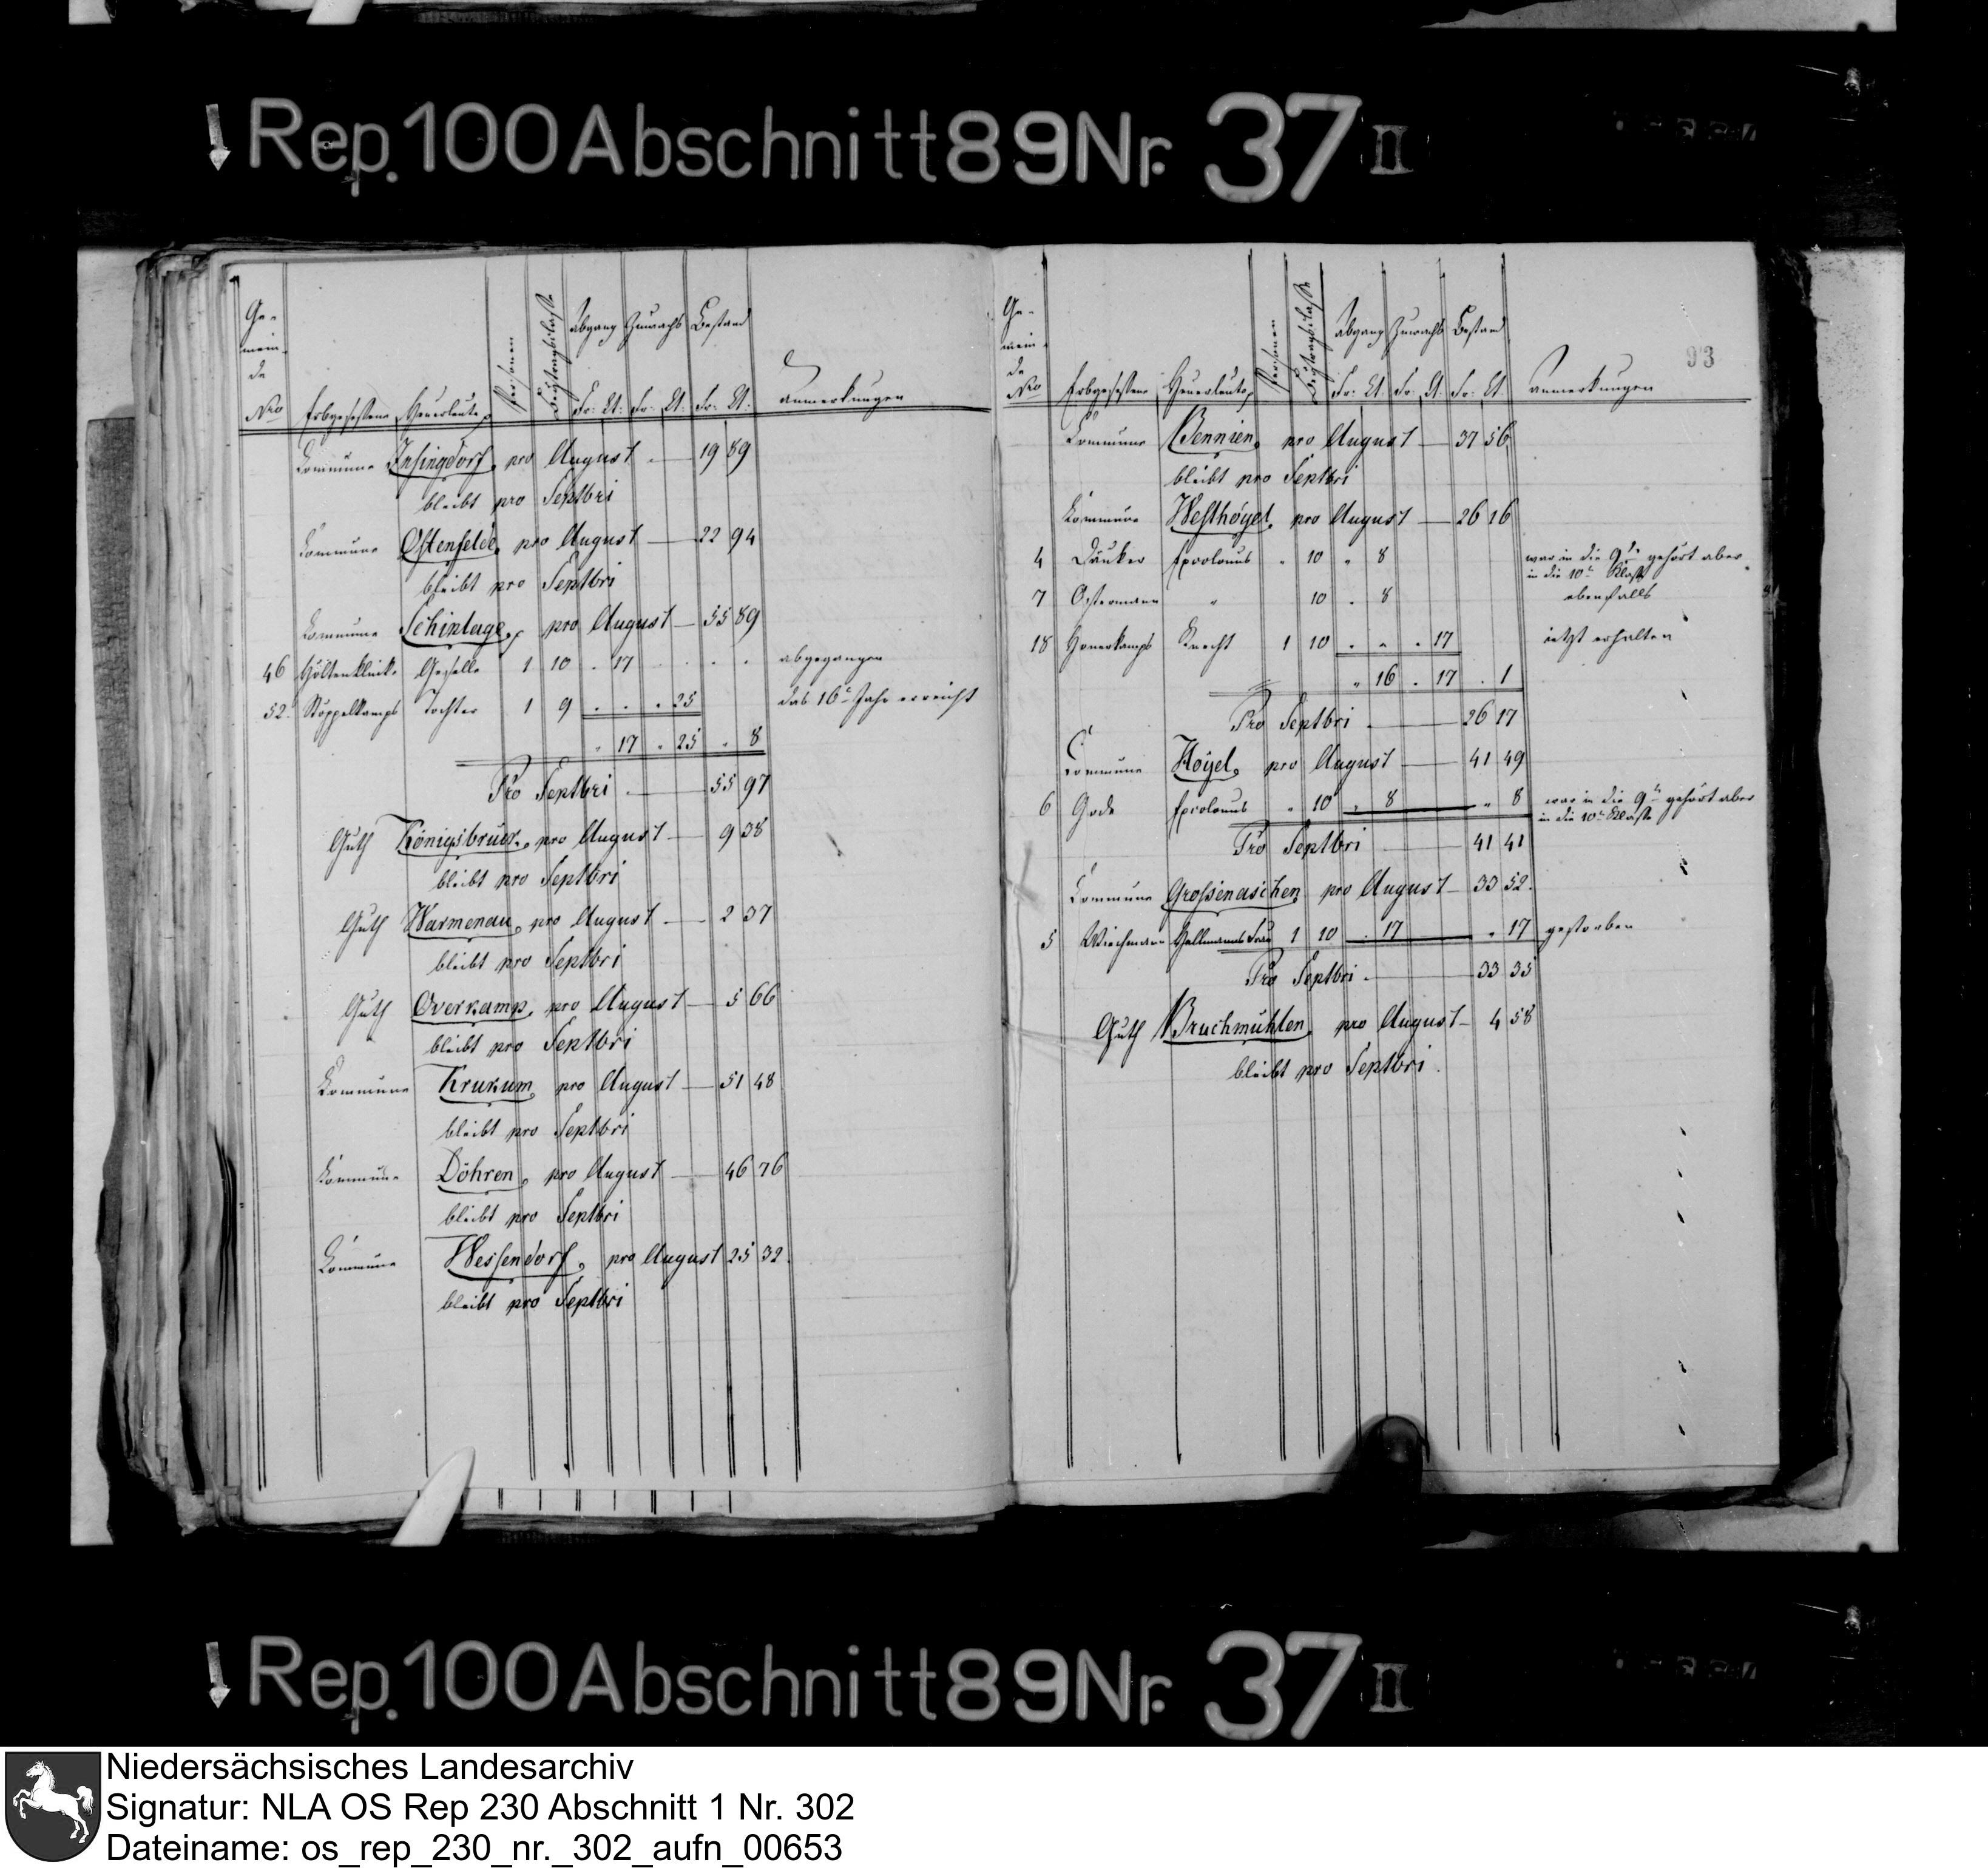 Rep. 100 Abschnitt 89 Nr. 37 II
Ge-
mein-
de
Nro Erbgesessene Heuerleute Personen Beytragsclasse Abgang Zuwachs Bestand Anmerkungen
Fr: Ct: Fr: Ct: Fr: Ct:
Commune Insingdorf, pro August — 19 89
bleibt pro Septbri
Commune Ostenfelde, pro August — 22 94
bleibt pro Septbri
Commune Schiplage, pro August — 55 89
46 Höltenklink Geselle 1 10 . 17 . . . . abgegangen
52. Stöppelkamps Tochter 1 9 . . " 25 das 16te Jahr erreicht
" 17 " 25 " 8
Pro Septbri — 55 97
Guth Königsbrück, pro August — 9 38
bleibt pro Septbri
Guth Warmenau, pro August — 2 37
bleibt pro Septbri
Guth Overkamp, pro August — 5 66
bleibt pro Septbri
Commune Krukum, pro August — 51 48
bleibt pro Septbri
Commune Döhren, pro August — 46 76
bleibt pro Septbri
Commune Wessendorf, pro August 25 32.
bleibt pro Septbri
93
Ge-
mein-
de
Nro Erbgesessene Heuerleute Personen Beytragsclasse Abgang Zuwachs Bestand Anmerkungen
Fr: Ct: Fr: Ct: Fr: Ct:
Commune Bennien, pro August — 37 56
bleibt pro Septbri
Commune Westhöyel, pro August — 26 16
4 Däuker Excolonus " 10 " 8 war in die 9te gehört aber
in die 10te Classe
7 Ostermann " 10 . 8 ebenfalls
18 Honerkamps Knecht 1 10 . " . 17 jetzt erhalten
" 16 . 17 . 1
Pro Septbri — 26 17
Commune Höyel, pro August — 41 49
6 Gode Excolonus " 10 " 8 — " 8 war in die 9te gehört aber
in die 10te Classe
Pro Septbri — 41 41
Commune Grossenaschen pro August — 33 52.
5 Wiechmann Hallmanns Frau 1 10 . 17 — " 17 gestorben
Pro Septbri — 33 35
Guth Bruchmühlen, pro August — 4 58
bleibt pro Septbri.
Rep. 100 Abschnitt 89 Nr. 37 II
Niedersächsisches Landesarchiv
Signatur: NLA OS Rep 230 Abschnitt 1 Nr. 302
Dateiname: os_rep_230_nr._302_aufn_00653